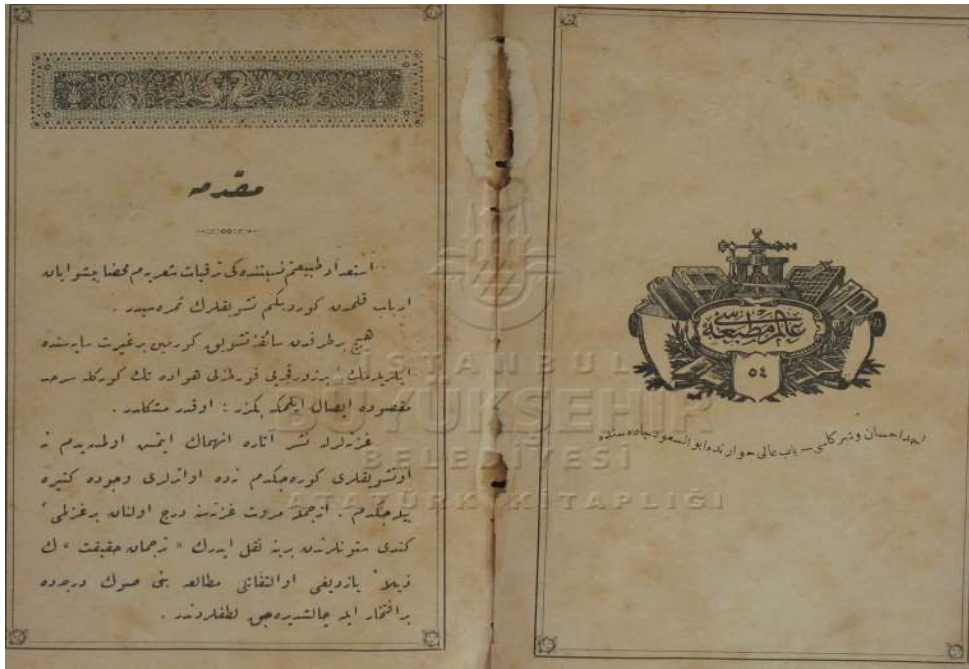 مقدمه
استعداد طبيعتم نسبتنده كى ترقيات شعريه م محضا پيشوايان
ارباب قلمدن كورديكم تشويقلرك ثمره سيدر .
هيچ بر طرفدن سائقۀ تشويق كورمين بر غيرت سايه سنده
ايلريله مك، برزورقچه يى فورطنه لى هواده تك كوركله سرحد
مقصوده ايصال ايلمكه بكزر : اوقدر مشكلدر .
غزته لرله نشر آثاره انهماك ايتمش اولمه ايدم نه
او تشويقلرى كوره جكدم نه ده او اثرلرى وجوده كتيره
بيله جكدم . از جمله مروت غزته سنه درج اولنان بر غزلمى
كندى ستونلرندن برينه نقل ايدرك « ترجمان حقيقت » ك
ذيلاً يازديغى او التفاتلى مطالعه بنى صوك درجه ده
بر افتخار ايله چالشديره جق لطفلردندر .
عالم مطبعه سى
٥٤
احمد احسان و شركاسى – باب عالى جوارنده ابوالسعود جاده سنده
İSTANBUL
BÜYÜKŞEHİR
BELEDİYESİ
ATATÜRK KİTAPLIĞI